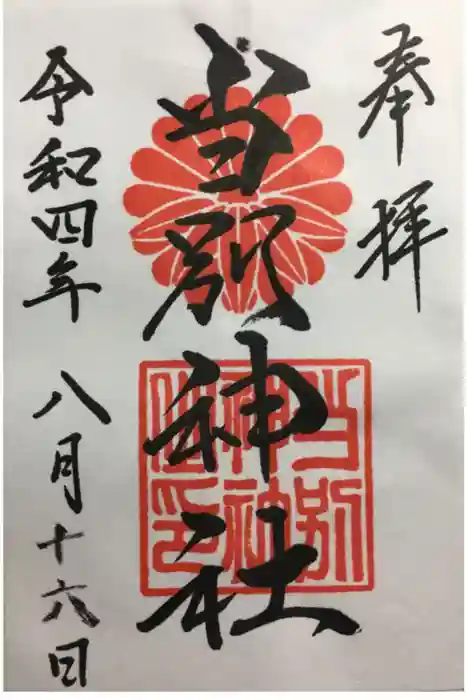 奉拝
当別神社
当別
神社
之印
令和四年 八月十六日